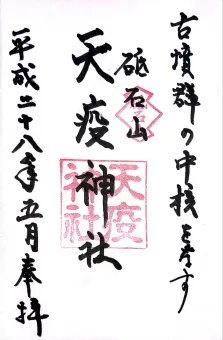 古墳群の中核をなす
砥石山
天疫神社
平成二十八年五月奉拝
天疫
神社